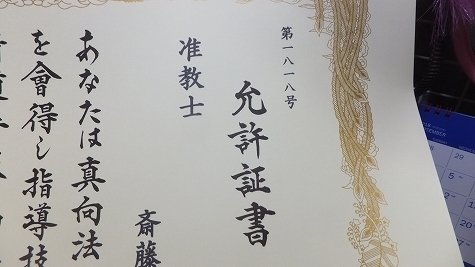 第一八一八号
允許証書
准教士
斎藤
あなたは真向法
を會得し指導技
29
5